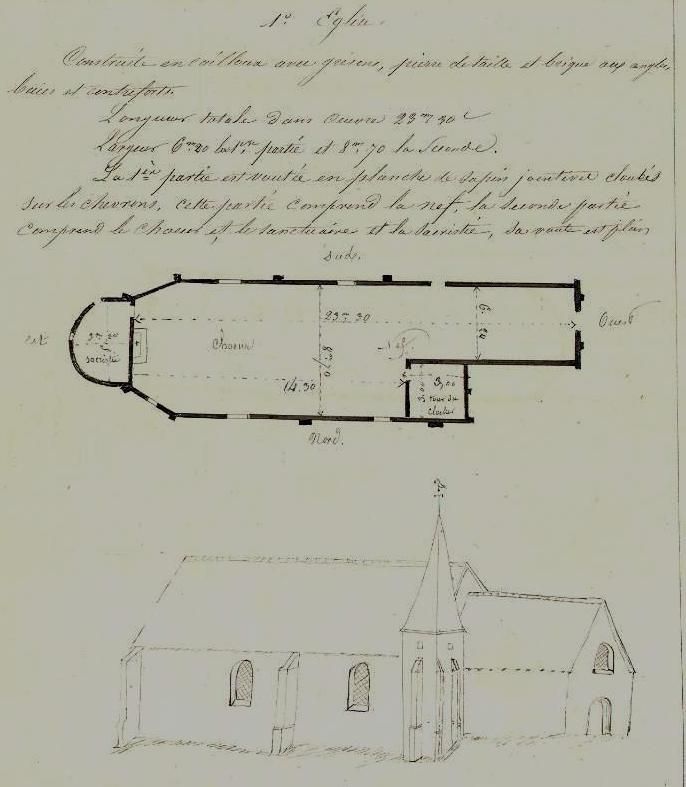 1º Eglise.
Construite en cailloux avec grisons, pierre de taille et brique aux angles,
baies et contreforts.
Longueur totale dans œuvre 23m 30c
Largeur 6m20 la 1ere partie et 8m,70 la seconde.
La 1ère partie est voutée en planche de sapin jointives clouées
sur les chevrons, cette partie comprend la nef, la seconde partie
comprend le chœur et le sanctuaire et la sacristie, sa voute est plein
sud.
23m 30
6m 20
Ouest
est
3m 00
sacristie
Chœur
8m 70
Nef
14.30
3,00
tour du
clocher
Nord.